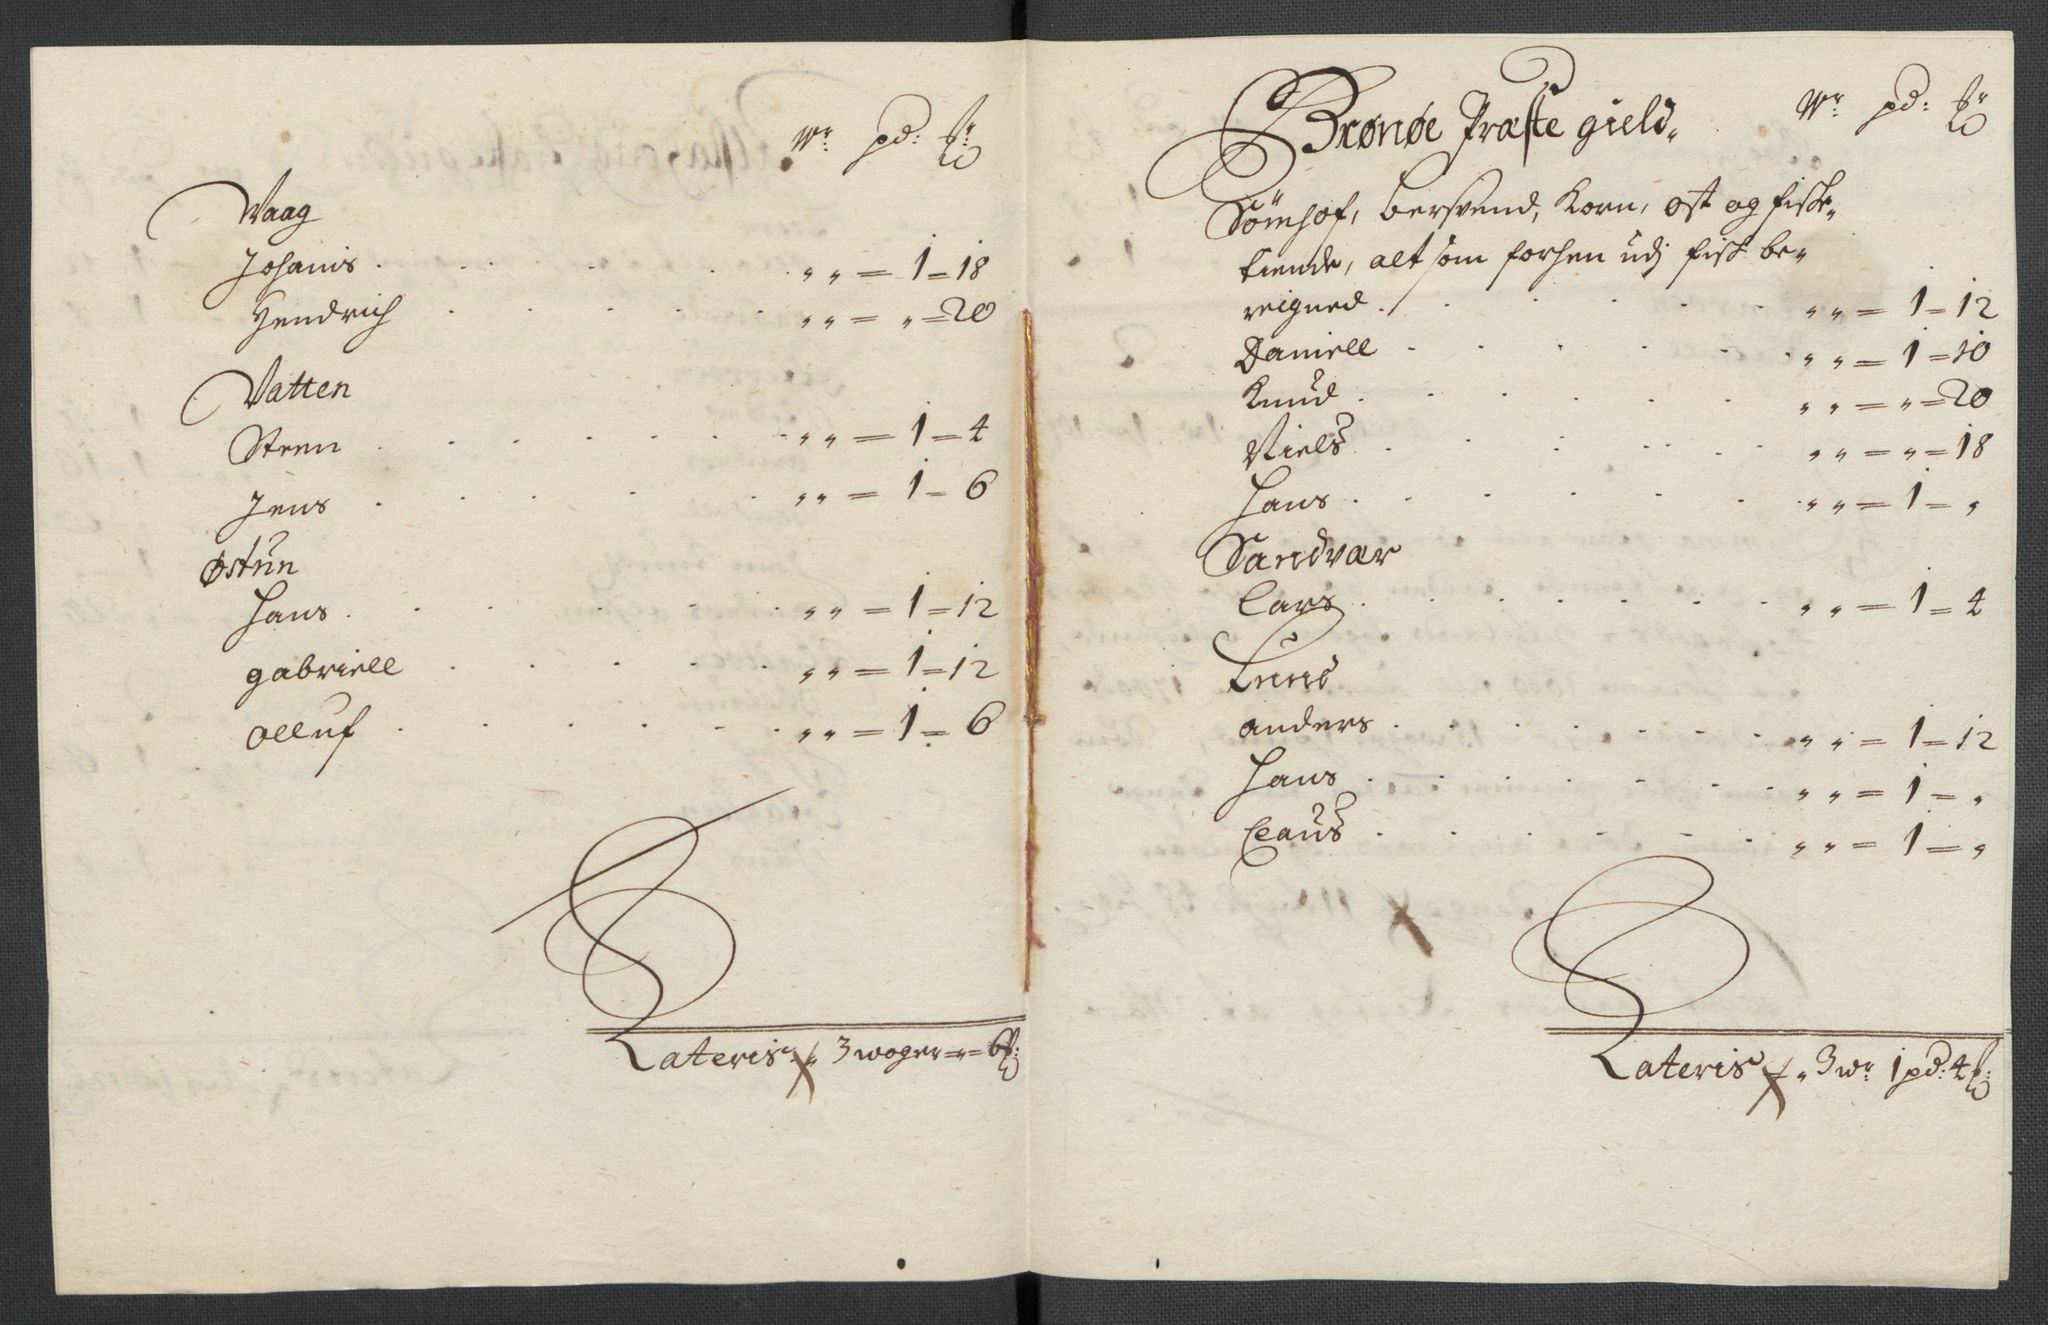 Wr: pd: lr:
Waag
Johanis . . . . . „ „ = 1 = 18
Hendrich . . . . . „ „ = „ = 20
Vatten
Steen . . . . . „ „ = 1 = 4
Jens . . . . . „ „ = 1 = 6
Østun
Hans . . . . . „ „ = 1 = 12
gabriell . . . . . „ „ = 1 = 12
olluf . . . . . „ „ = 1 = 6
Lateris „ 3 woger = „ = 6 l:
Brønøe Præste gield. Wr: pd: lr
Sömhof, berswend, Korn, ost og fiske-
tiende, alt som forhen udj fisk be-
reigned . . . . . „ „ = 1 = 12
Daniell . . . . . „ „ = 1 = 10
Knud . . . . . „ „ = „ = 20
Niels . . . . . „ „ = „ = 18
Hans . . . . . „ „ = 1 = „
Sandvær
Lars . . . . . „ „ = 1 = 4
anders . . . . . „ „ = 1 = 12
Hans . . . . . „ „ = 1 = „
Claus . . . . . „ „ = 1 = „
Lateris „ 3 wr 1 pd: 4 l: